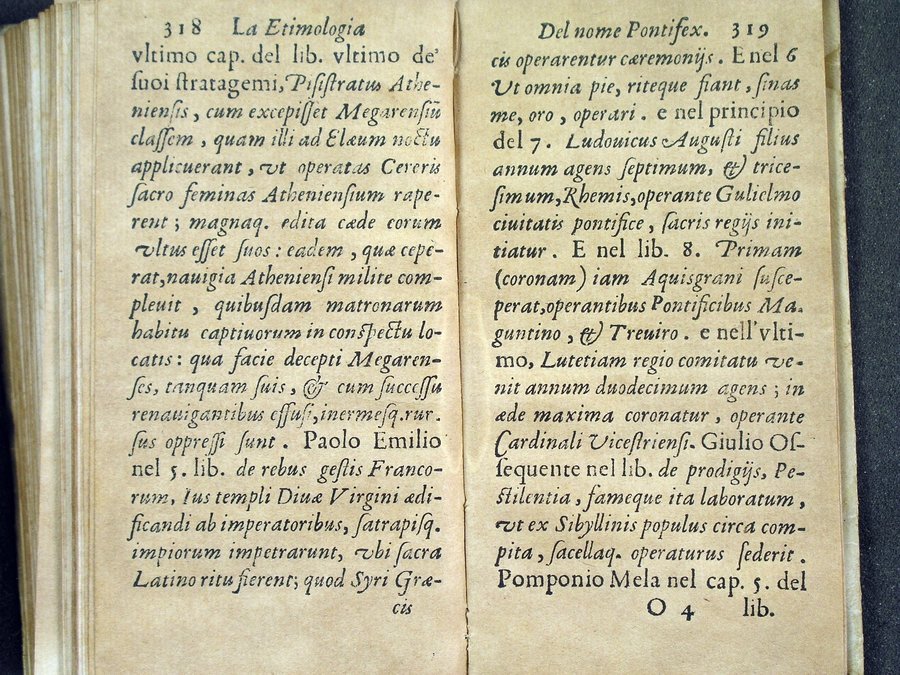 318 La Etimologia
vltimo cap. del lib. vltimo de'
suoi ſtratagemi, Piſiſtratus Athe-
nienſis, cum excepiſſet Megarenſiũ
claſſem, quam illi ad Elæum noctu
applicuerant, vt operatas Cereris
ſacro feminas Athenienſium rape-
rent; magnaq. edita cæde eorum
vltus eſſet ſuos: eadem, quæ cepe-
rat, nauigia Athenienſi milite com-
pleuit, quibuſdam matronarum
habitu captiuorum in conſpectu lo-
catis: qua facie decepti Megaren-
ſes, tanquam ſuis, & cum ſucceſſu
renauigantibus effuſi, inermeſq. rur.
ſus oppreſſi ſunt. Paolo Emilio
nel 5. lib. de rebus geſtis Franco-
rum, Ius templi Diuæ Virgini ædi-
ficandi ab imperatoribus, ſatrapiſq.
impiorum impetrarunt, vbi ſacra
Latino ritu fierent; quod Syri Græ-
cis
Del nome Pontifex. 319
cis operarentur cæremonijs. E nel 6
Vt omnia pie, riteque fiant, ſinas
me, oro, operari. e nel principio
del 7. Ludouicus Auguſti filius
annum agens ſeptimum, & trice-
ſimum, Rhemis, operante Gulielmo
ciuitatis pontifice, ſacris regijs ini-
tiatur. E nel lib. 8. Primam
(coronam) iam Aquiſgrani ſuſce-
perat, operantibus Pontificibus Ma.
guntino, & Treuiro. e nell'vlti-
mo, Lutetiam regio comitatu ve-
nit annum duodecimum agens; in
æde maxima coronatur, operante
Cardinali Viceſtrienſi. Giulio Oſ-
ſequente nel lib. de prodigijs, Pe-
ſtilentia, fameque ita laboratum,
vt ex Sibyllinis populus circa com-
pita, ſacellaq. operaturus ſederit.
Pomponio Mela nel cap. 5. del
O 4 lib.